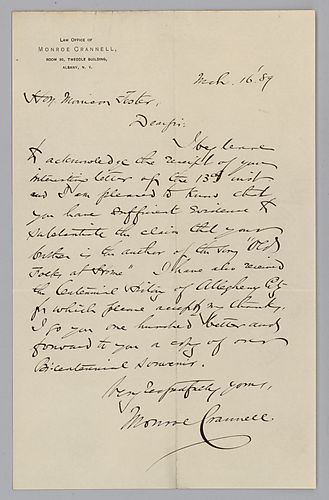 LAW OFFICE OF
MONROE CRANNELL,
ROOM 50, TWEDDLE BUILDING,
ALBANY, N. Y.
Mch. 16 '89
Hon Morrison Foster,
Dear Sir:
I beg leave
to acknowledge the receipt of your
interesting letter of the 13th inst
and I am pleased to know that
you have sufficient evidence to
substantiate the claim that your
brother is the author of the song "Old
Folks at Home" I have also received
the Centennial History of Allegheny Co
for which please accept my thanks.
I go you one hundred better and
forward to you a copy of our
Bi-centennial Souvenir.
Very respectfully yours,
Monroe Crannell.